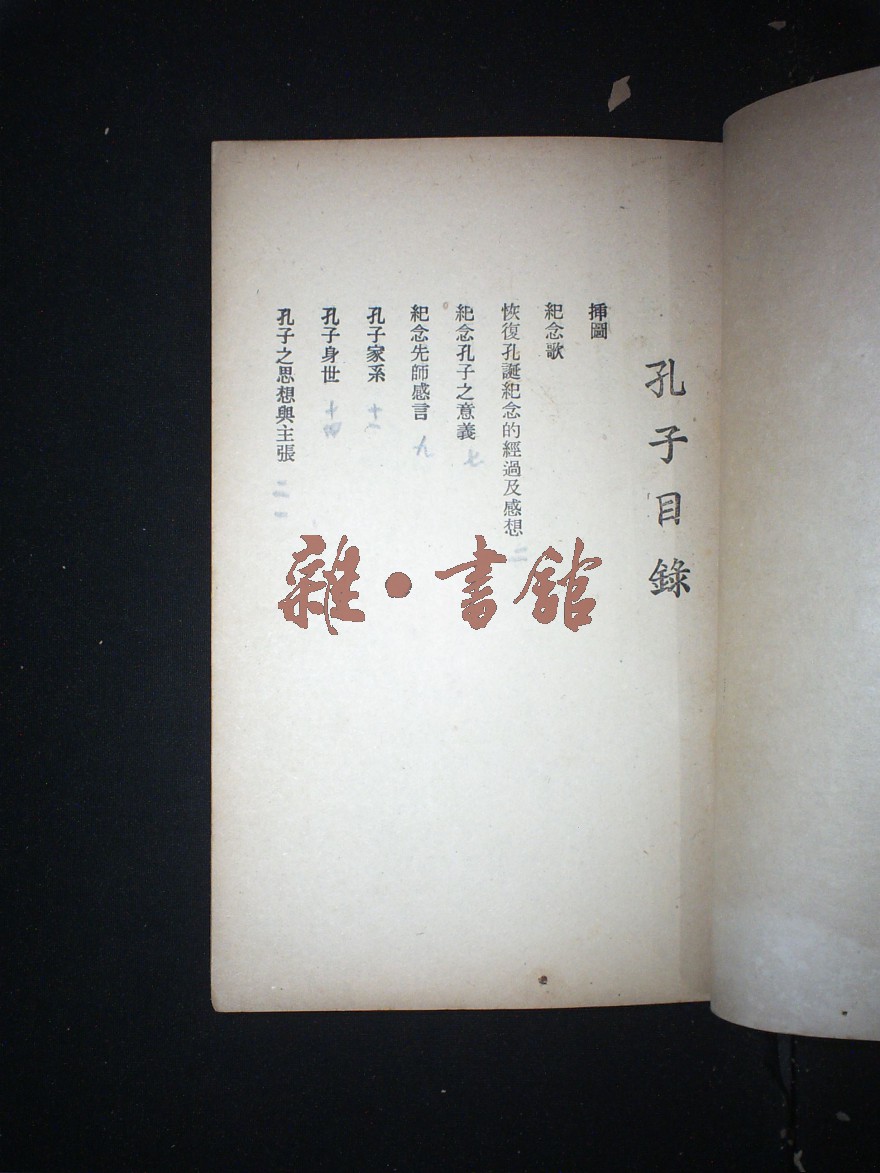 孔子目錄
插圖
紀念歌
恢復孔誕紀念的經過及感想 二
紀念孔子之意義 七
紀念先師感言 九
孔子家系
孔子身世 十四
孔子之思想與主張
雜·書館